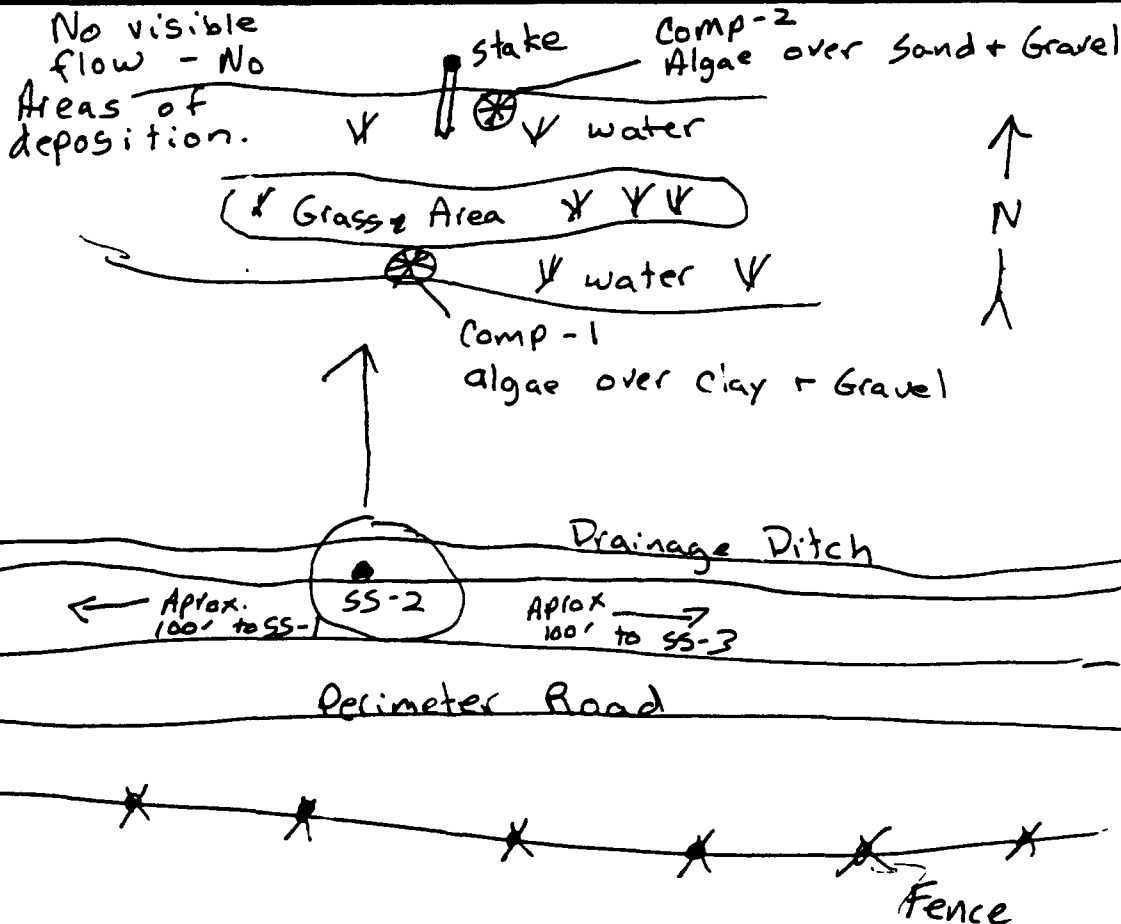 No visible
flow - No
Areas of
deposition.
stake
Comp-2
Algae over Sand + Gravel
water
N
Grassy Area
water
Comp-1
algae over clay + Gravel
Drainage Ditch
SS-2
Aprox.
100' to SS-1
Aprox
100' to SS-3
Perimeter Road
Fence